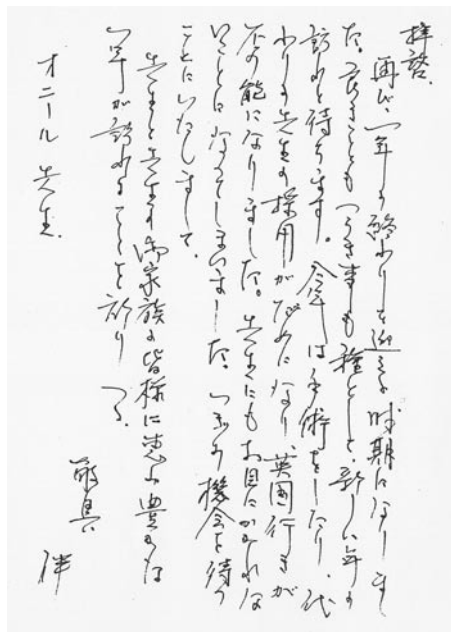 拝啓、
再び、一年の終わりを迎える時期になりまし
た。良きこともつらき事も種として、新しい年の
訪れを待ちます。今年は手術をしたり、代
わりの先生の採用がだめになり、英国行きが
不可能になりました。先生にもお目にかかれな
いことになってしまいました。つぎの機会を待つ
ことにいたしまして、
先生と先生の御家族の皆様に恵み豊かな
一年が訪れることを祈りつつ。
敬具
伴
オニール先生.